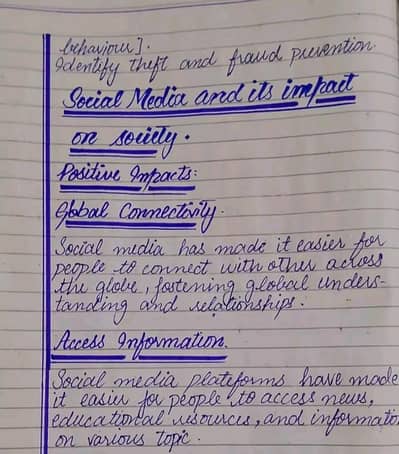 behaviour].
Identify theft and fraud prevention.
Social Media and its impact
on society.
Positive Impacts:
Global Connectivity.
Social media has made it easier for
people to connect with other across
the globe, fostening global unders-
tanding and relationships.
Access Information.
Social media plateforms have made
it easier for people to access news,
educational resources, and informatio
on various topic.